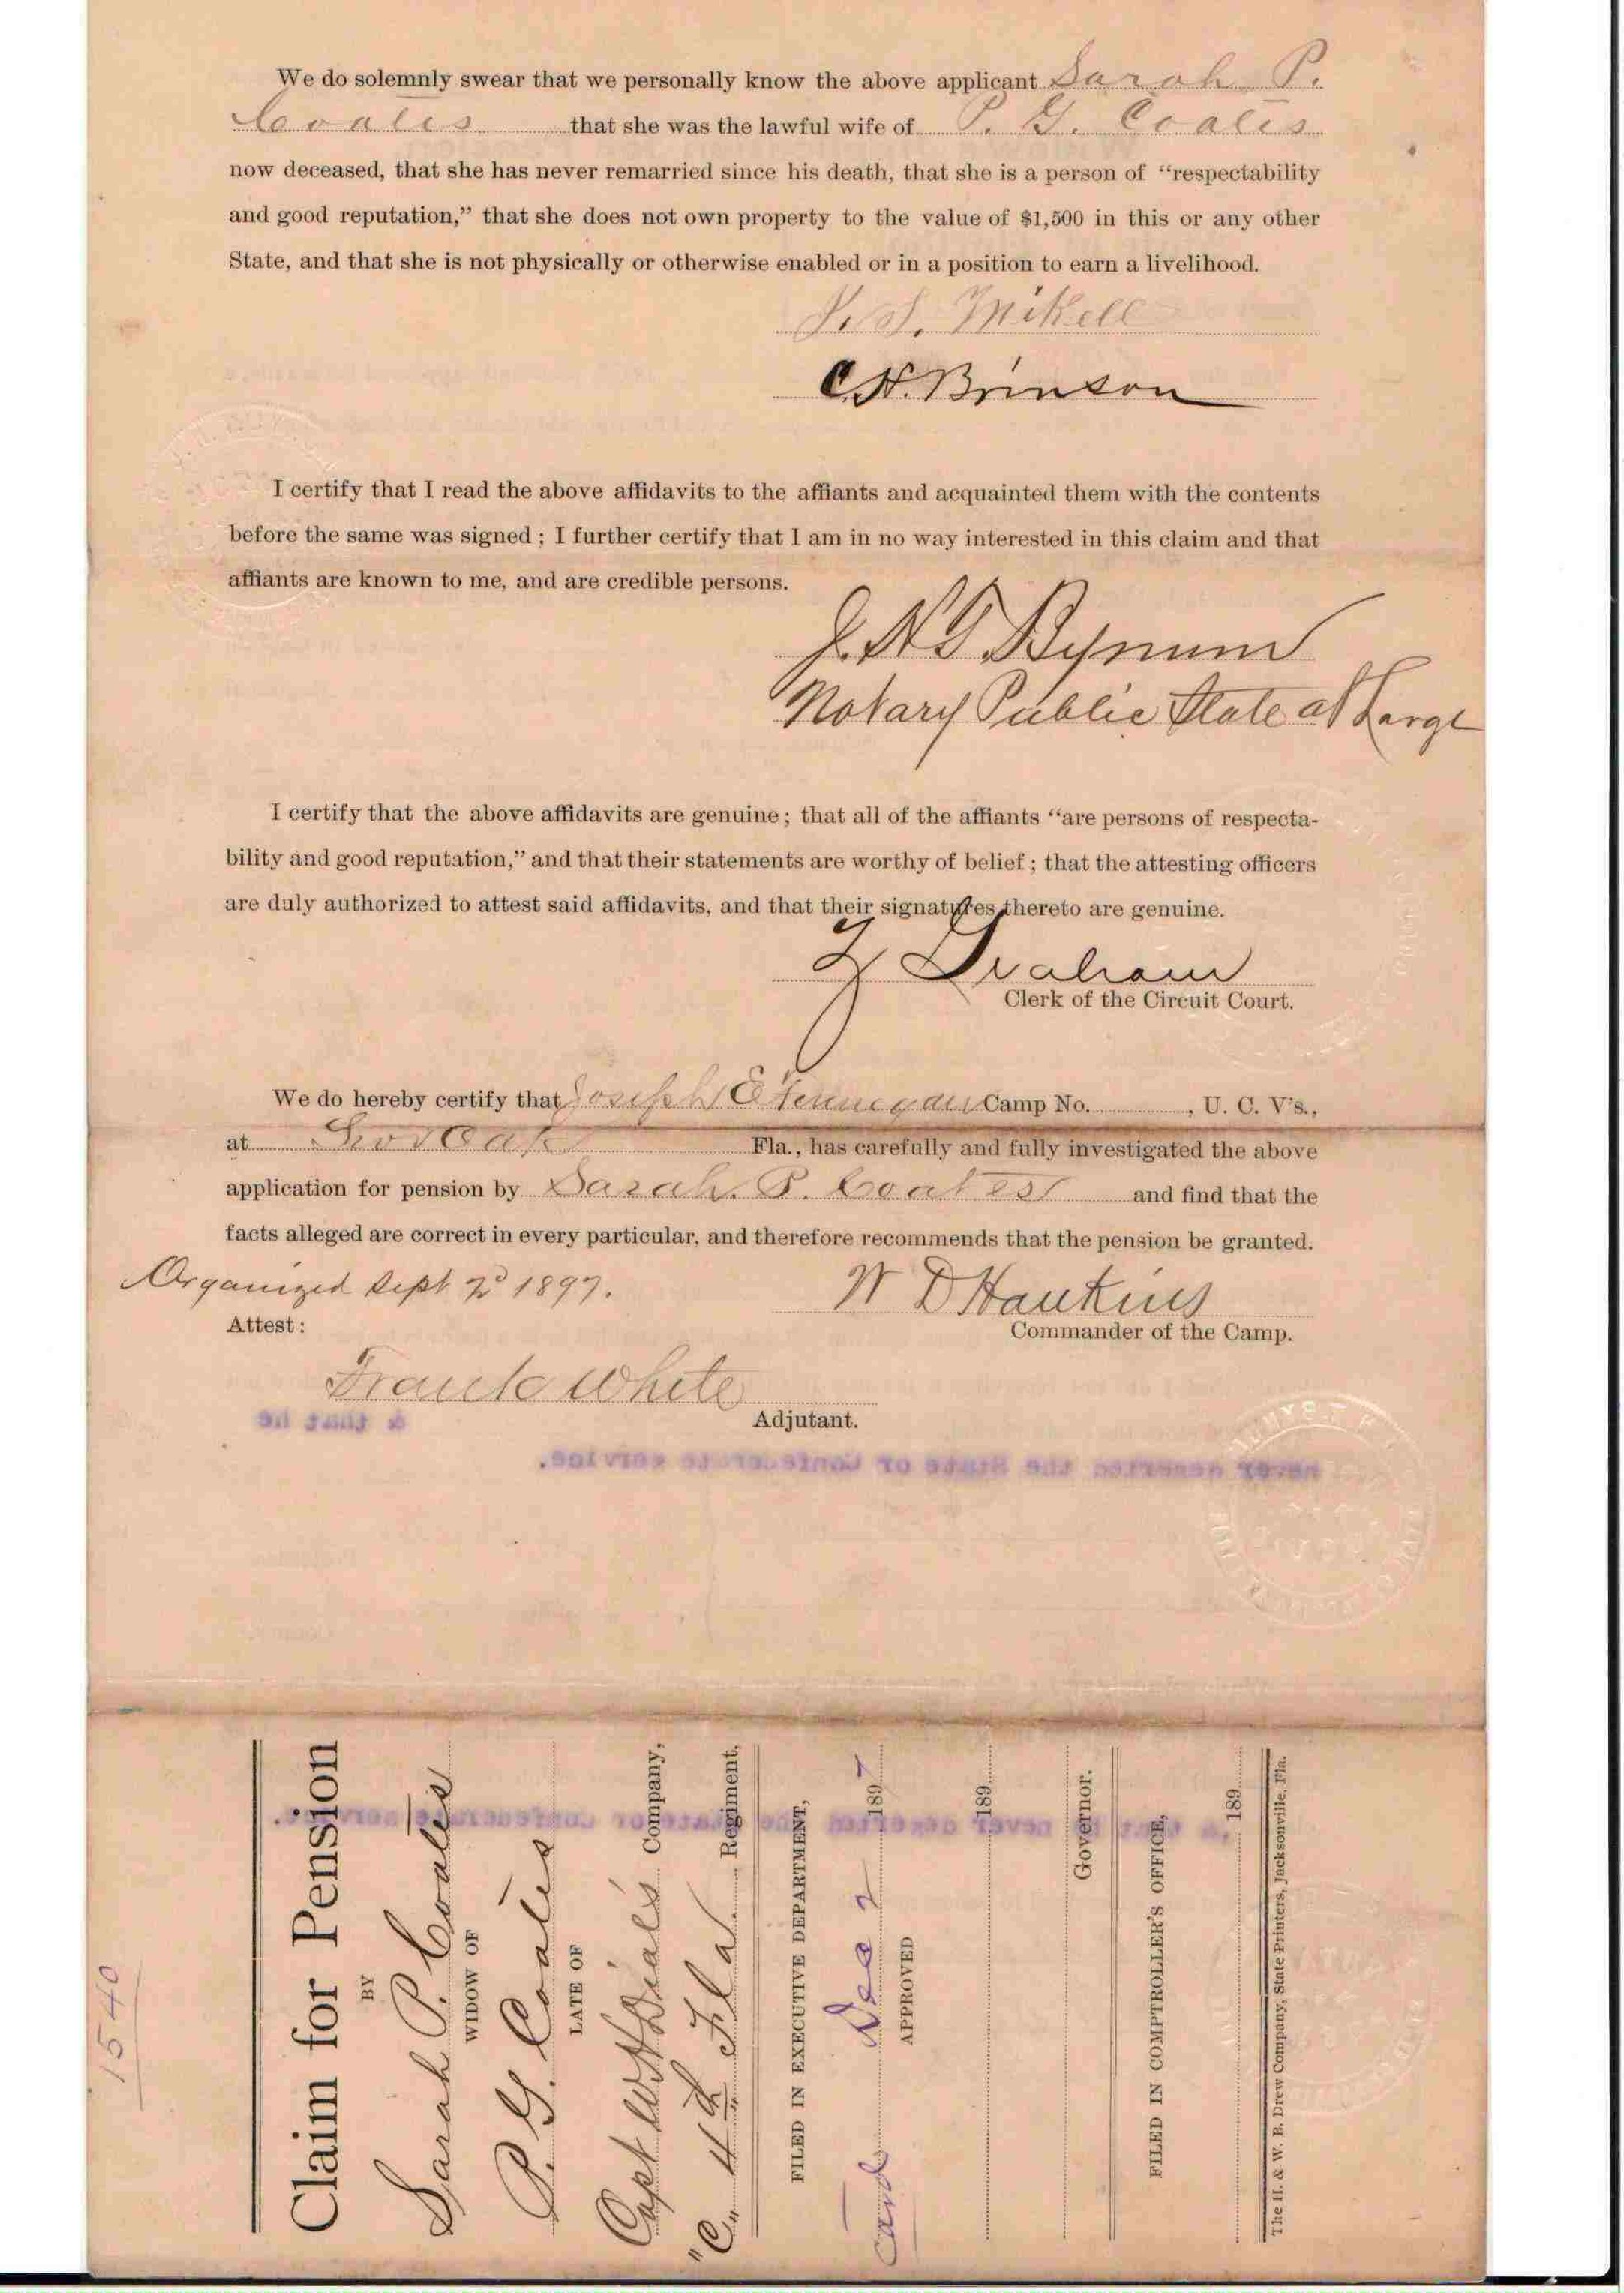 We do solemnly swear that we personally know the above applicant Sarah P.
Coates that she was the lawful wife of P. G. Coates
now deceased, that she has never remarried since his death, that she is a person of “respectability
and good reputation,” that she does not own property to the value of $1,500 in this or any other
State, and that she is not physically or otherwise enabled or in a position to earn a livelihood.
Mikell
C.H. Brinson
I certify that I read the above affidavits to the affiants and acquainted them with the contents
before the same was signed; I further certify that I am in no way interested in this claim and that
affiants are known to me, and are credible persons.
J. N T Bynum
Notary Public State at Large
I certify that the above affidavits are genuine; that all of the affiants “are persons of respecta-
bility and good reputation,” and that their statements are worthy of belief; that the attesting officers
are duly authorized to attest said affidavits, and that their signatures thereto are genuine.
Graham
Clerk of the Circuit Court.
We do hereby certify that Joseph Camp No. , U. C. V's.,
at Live Oak Fla., has carefully and fully investigated the above
application for pension by Sarah. P. Coates and find that the
facts alleged are correct in every particular, and therefore recommends that the pension be granted.
Organized Sept 1897.
W D Hawkins
Attest:
Commander of the Camp.
Frank White
Adjutant.
never deserted the State or Confederate service.
1540
Claim for Pension
BY
Sarah P. Coates
WIDOW OF
P. G. Coates
LATE OF
Capt W H Dial's Company,
"C" 4th Fla. Regiment.
FILED IN EXECUTIVE DEPARTMENT,
Dec 2 1897
APPROVED
189
Governor.
FILED IN COMPTROLLER'S OFFICE,
189
The H. & W. B. Drew Company, State Printers, Jacksonville, Fla.